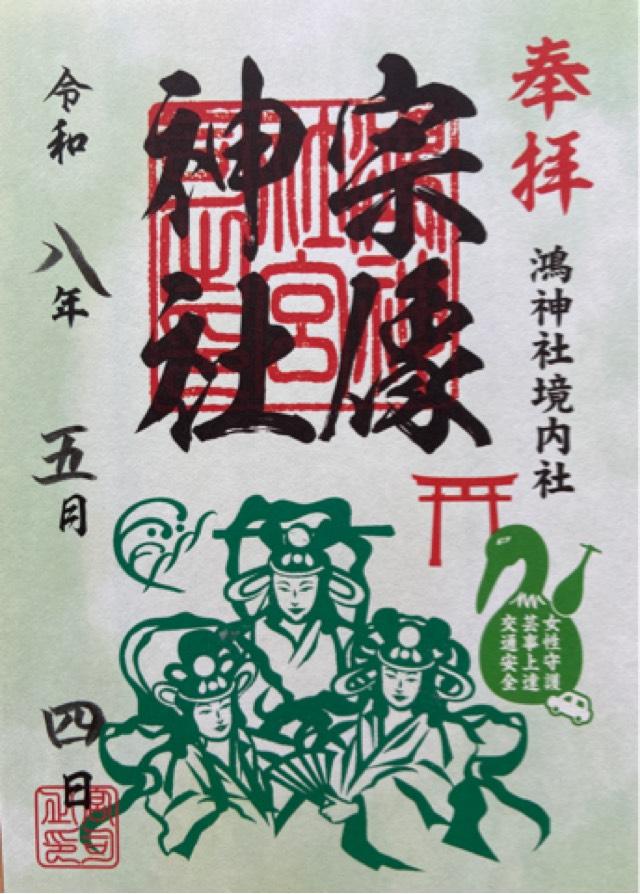 奉拝
鴻神社境内社
宗像
神社
女性守護
芸事上達
交通安全
令和 八年 五月 四日